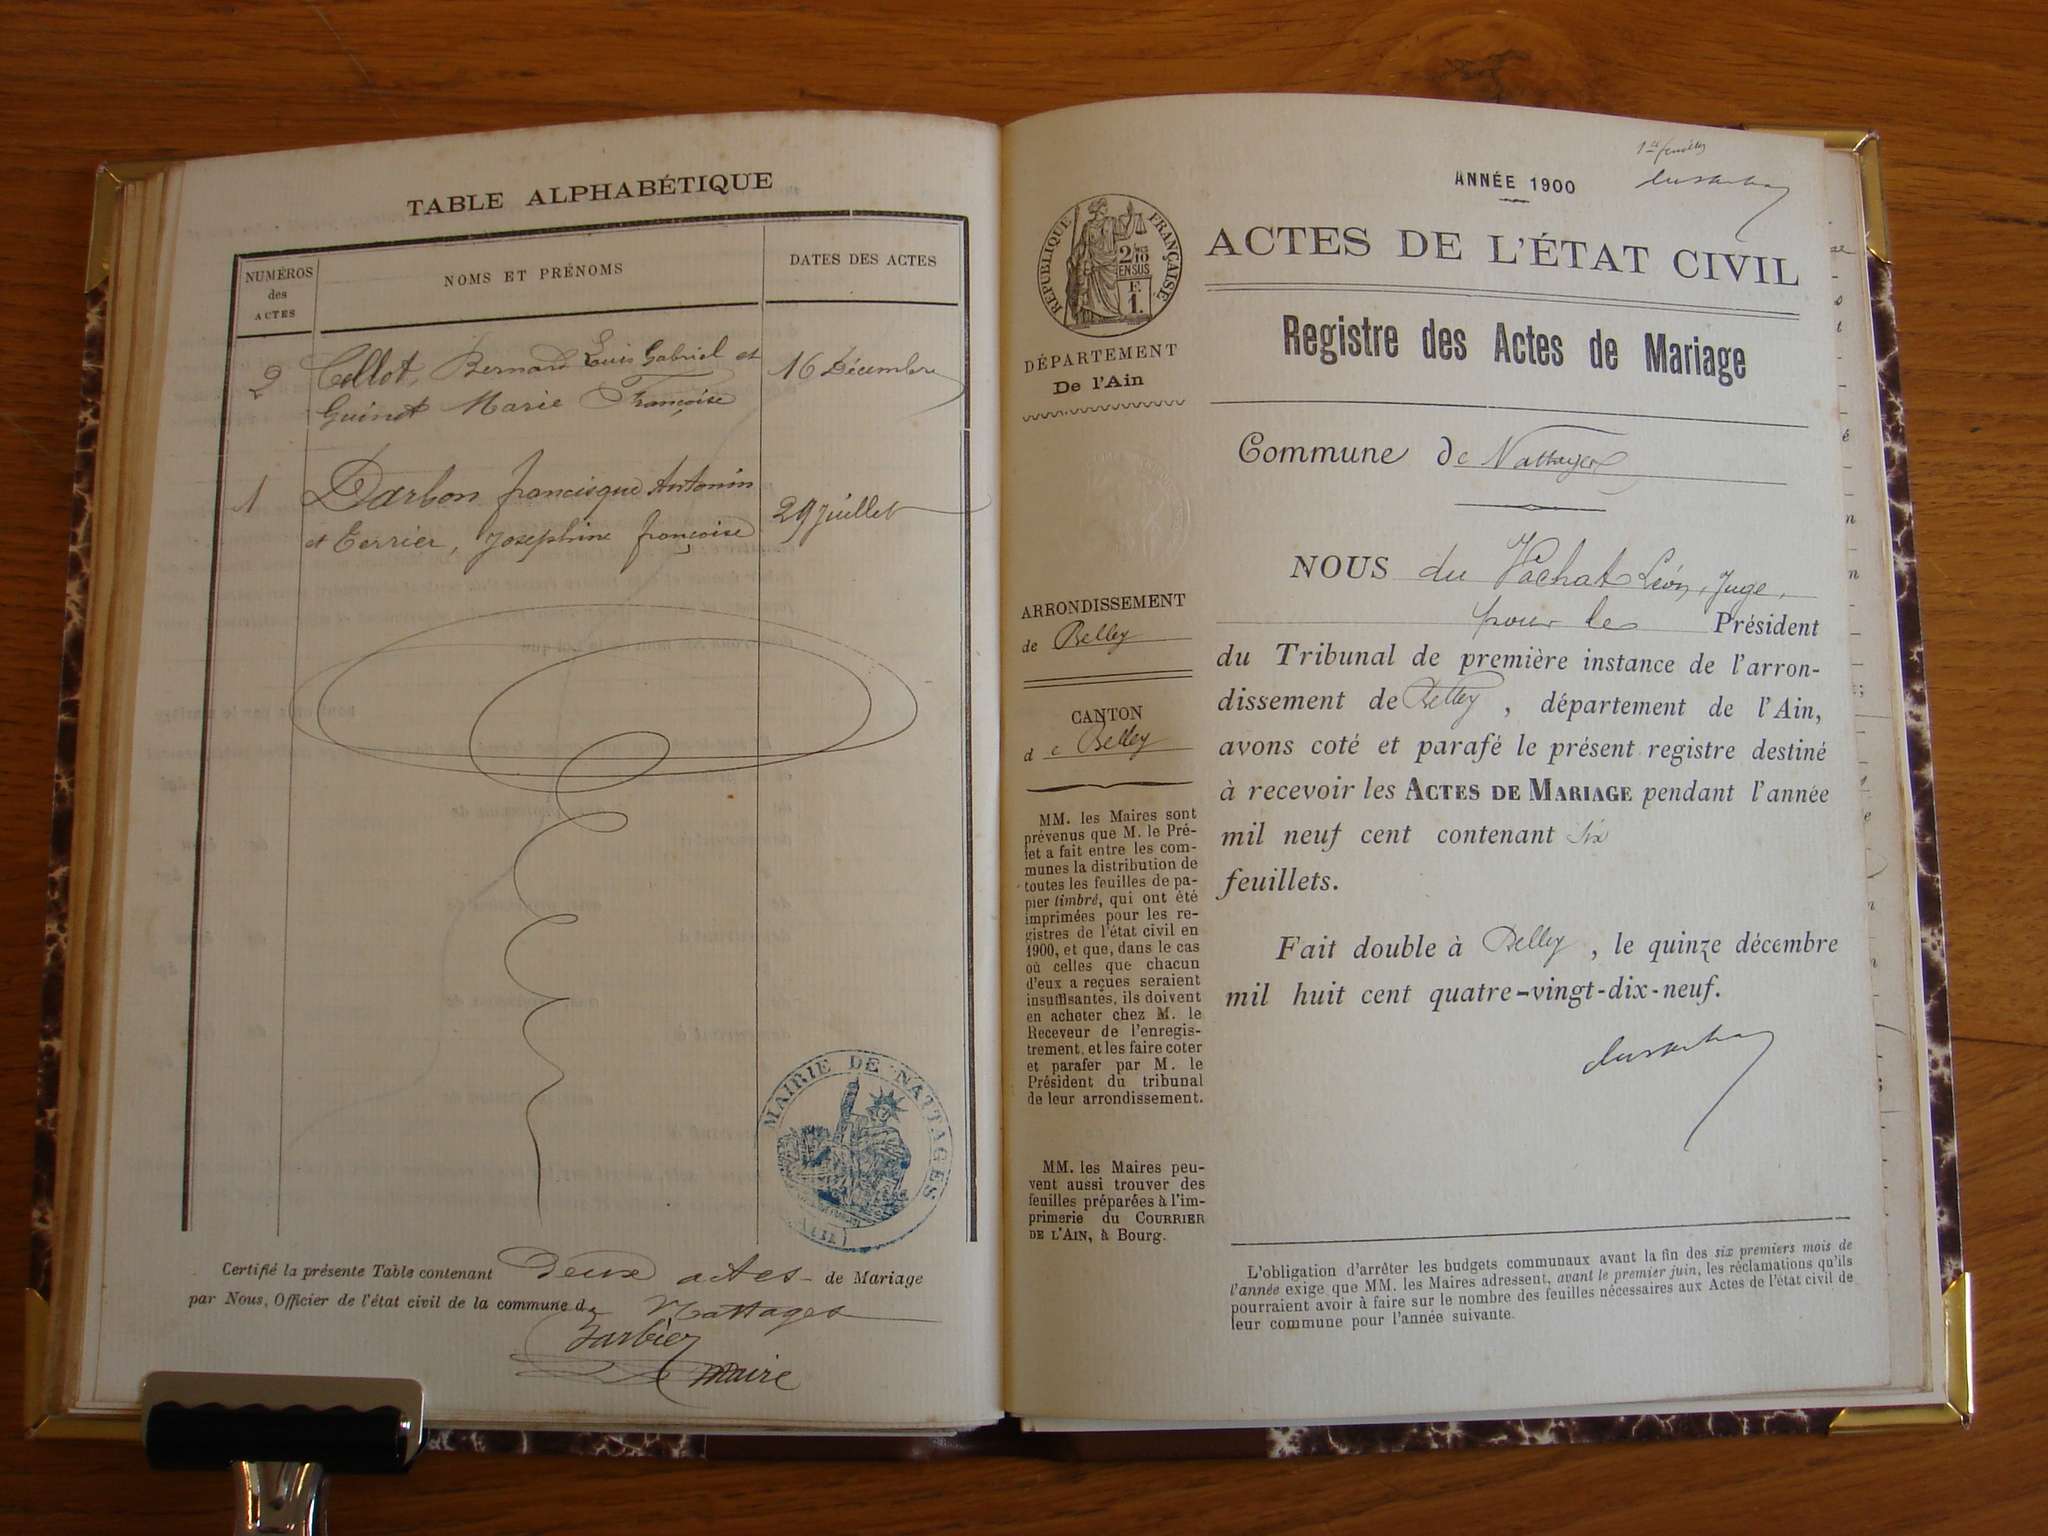 TABLE ALPHABÉTIQUE
NUMÉROS
des
ACTES
NOMS ET PRÉNOMS
DATES DES ACTES
2 Collot, Bernard Louis Gabriel et 16 Décembre
Guinot Marie Françoise
1 Darbon francisque Antonin
et Terrier, Joséphine françoise 29 juillet
MAIRIE DE NATTAGES
(AIN)
Certifié la présente Table contenant Deux actes de Mariage
par Nous, Officier de l'état civil de la commune de Nattages
Barbier
Maire
ANNÉE 1900
RÉPUBLIQUE FRANÇAISE
2/10
EN SUS
F.
1.
DÉPARTEMENT
De l'Ain
ARRONDISSEMENT
de Belley
CANTON
de Belley
MM. les Maires sont
prévenus que M. le Pré-
fet a fait entre les com-
munes la distribution de
toutes les feuilles de pa-
pier timbré, qui ont été
imprimées pour les re-
gistres de l'état civil en
1900, et que, dans le cas
où celles que chacun
d'eux a reçues seraient
insuffisantes, ils doivent
en acheter chez M. le
Receveur de l'enregis-
trement, et les faire coter
et parafer par M. le
Président du tribunal
de leur arrondissement.
MM. les Maires peu-
vent aussi trouver des
feuilles préparées à l'im-
primerie du COURRIER
DE L'AIN, à Bourg.
ACTES DE L'ÉTAT CIVIL
Registre des Actes de Mariage
Commune de Nattages
NOUS du Vachat Léon, Juge,
pour le Président
du Tribunal de première instance de l'arron-
dissement de Belley, département de l'Ain,
avons coté et parafé le présent registre destiné
à recevoir les ACTES DE MARIAGE pendant l'année
mil neuf cent contenant six
feuillets.
Fait double à Belley, le quinze décembre
mil huit cent quatre-vingt-dix-neuf.
L'obligation d'arrêter les budgets communaux avant la fin des six premiers mois de
l'année exige que MM. les Maires adressent, avant le premier juin, les réclamations qu'ils
pourraient avoir à faire sur le nombre des feuilles nécessaires aux Actes de l'état civil de
leur commune pour l'année suivante.